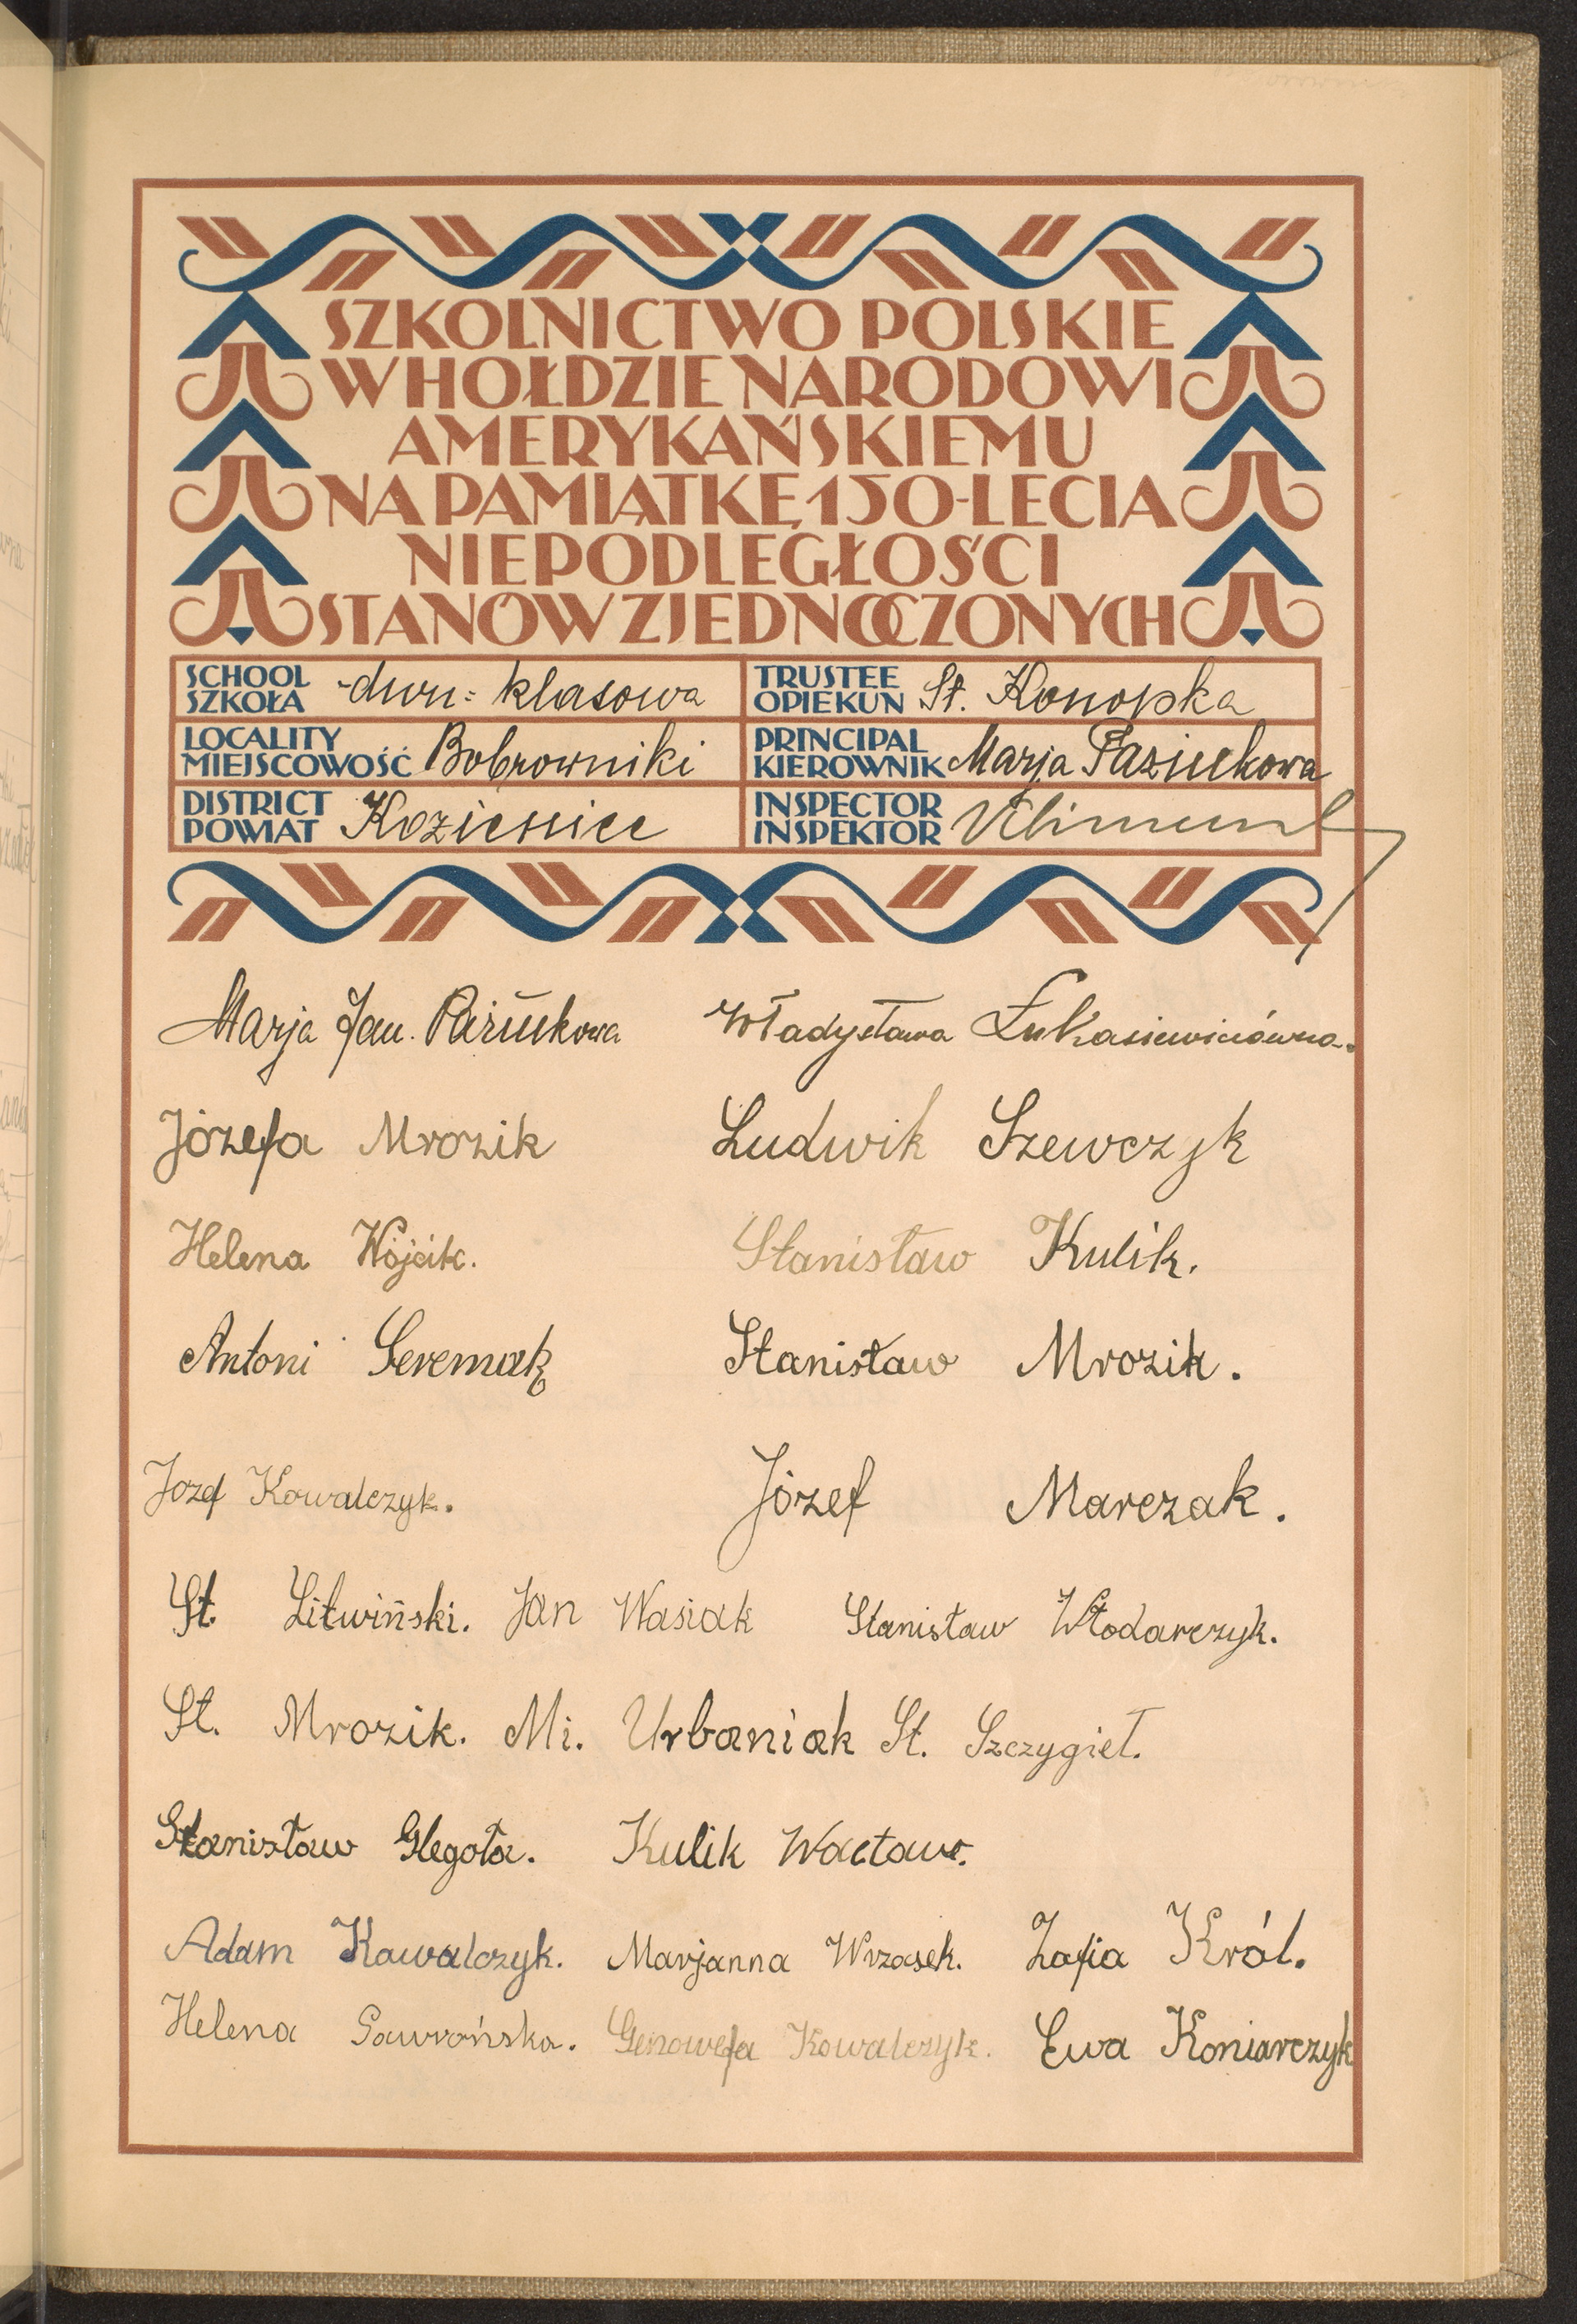 SZKOLNICTWO POLSKIE
W HOŁDZIE NARODOWI
AMERYKAŃSKIEMU
NA PAMIĄTKĘ 150-LECIA
NIEPODLEGŁOŚCI
STANÓW ZJEDNOCZONYCH
SCHOOL
SZKOŁA dwu=klasowa
TRUSTEE
OPIEKUN St. Konopka
LOCALITY
MIEJSCOWOŚĆ Bobrowniki
PRINCIPAL
KIEROWNIK Marja Paziukowa
DISTRICT
POWIAT Kozienice
INSPECTOR
INSPEKTOR
Marja Jan. Paziukowa Władysława Łukasiewiczówna.
Józefa Mrozik Ludwik Szewczyk
Helena Wójcik. Stanisław Kulik.
Antoni Seremak Stanisław Mrozik.
Jozef Kowalczyk. Józef Marczak.
St. Litwiński. Jan Wasiak Stanisław Włodarczyk.
St. Mrozik. Mi. Urbaniak St. Szczygieł.
Stanisław Glegoła. Kulik Wacław.
Adam Kowalczyk. Marjanna Wrzosek. Zofia Król.
Helena Gawrońska. Genowefa Kowalczyk. Ewa Koniarczyk